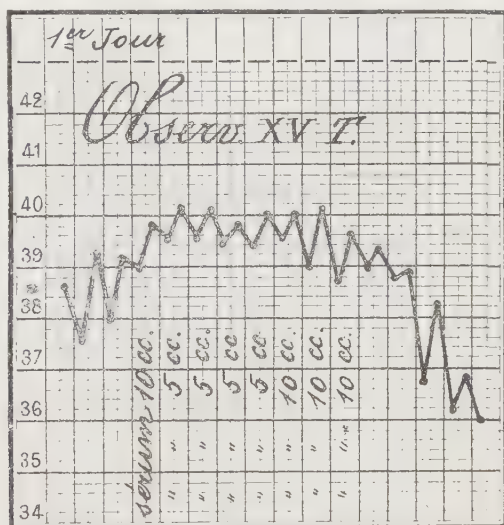 1er Jour
Observ. XV T.
42
41
40
39
38
37
36
35
34
sérum 10 cc.
" " 5 cc.
" " 5 cc.
" " 5 cc
" " 5 cc.
" " 10 cc.
" " 10 cc.
" " 10 cc.